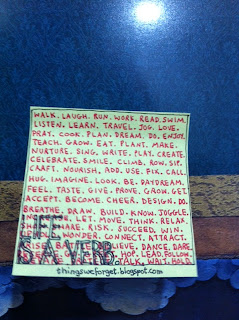 WALK. LAUGH. RUN. WORK. READ. SWIM.
LISTEN. LEARN. TRAVEL. JOG. LOVE.
PRAY. COOK. PLAN. DREAM. DO. ENJOY.
TEACH. GROW. EAT. PLANT. MAKE.
NURTURE. SING. WRITE. PLAY. CREATE.
CELEBRATE. SMILE. CLIMB. ROW. SIP.
CRAFT. NOURISH. ADD. USE. FIX. CALL.
HUG. IMAGINE. LOOK. BE. DAYDREAM.
FEEL. TASTE. GIVE. PROVE. GROW. GET.
ACCEPT. BECOME. CHEER. DESIGN. DO.
BREATHE. DRAW. BUILD. KNOW. JOGGLE.
LET. MOVE. THINK. RELAX.
SHARE. RISK. SUCCEED. WIN.
LIFE WONDER. CONNECT. ATTRACT.
IS A VERB. BELIEVE. DANCE. DARE.
HOP. LEAD. FOLLOW.
TALK. WAIT. HOLD.
thingsweforget.blogspot.com